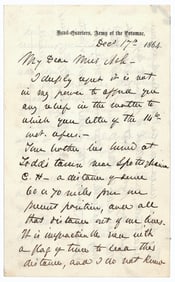 Head-Quarters, Army of the Potomac,
Dec. 17th 1864.
My Dear Miss
I deeply regret it is not
in my power to afford you
any relief in the matter to
which your letter of the 14th
inst. refers.—
Your brother was buried at
Todds tavern near Spottsylvania
C. H.— a distance of some
60 or 70 miles from our
present position, and all
that distance out of our lines.
It is impracticable even with
a flag of truce to send this
distance, and I do not know